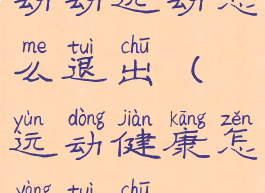 me tuì chū
么退出(
yùn dòng jiàn kāng zěn
运动健康怎
yàng tuì chū